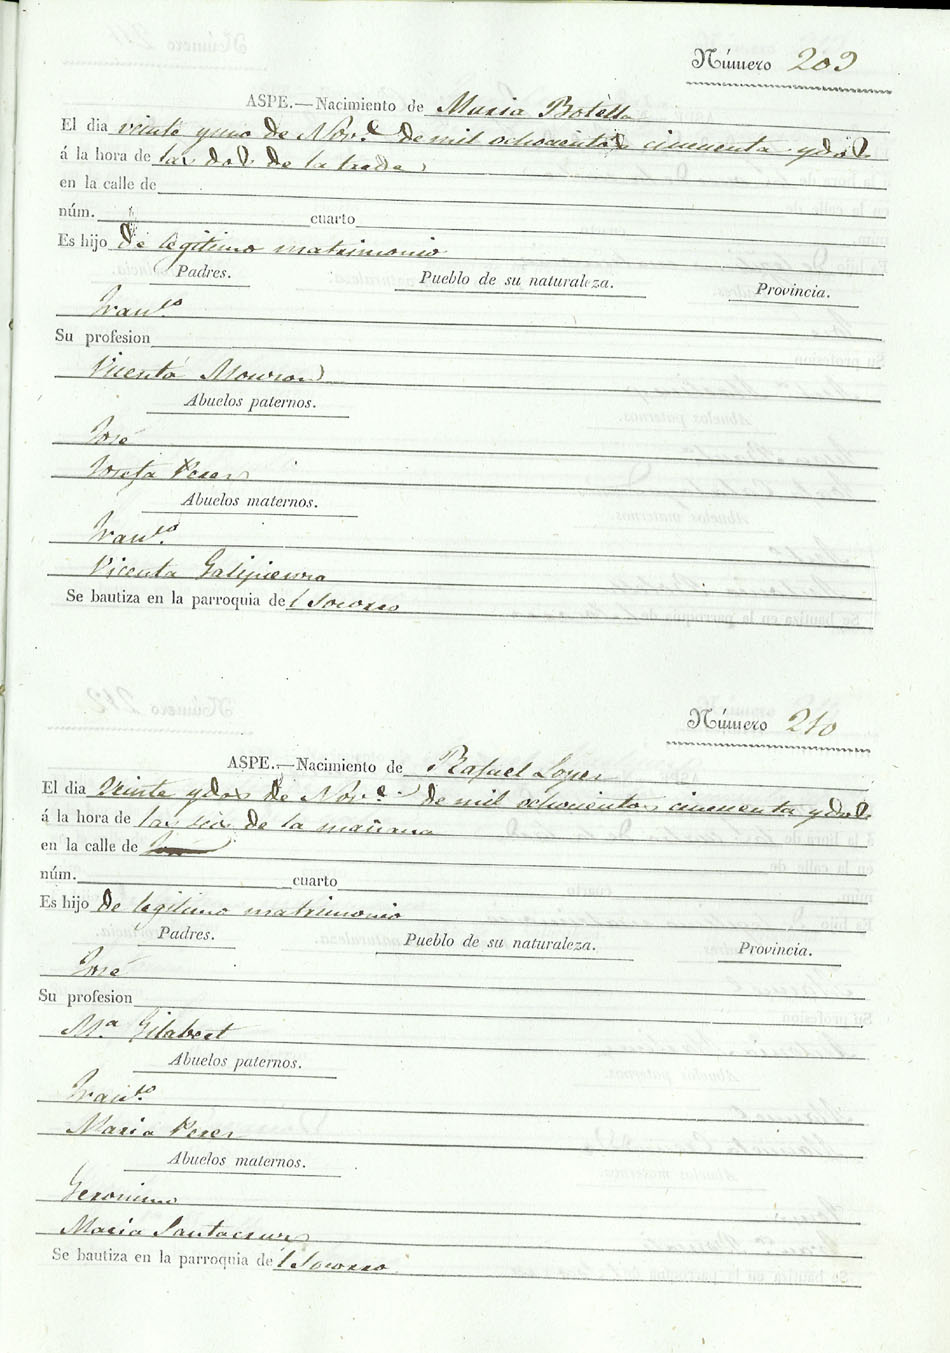 Número 209
ASPE.—Nacimiento de Maria Botella
El dia veinte y uno de Nov.e de mil ochocientos cincuenta y dos
á la hora de las dos de la tarde
en la calle de
núm. cuarto
Es hijo de legitimo matrimonio
Padres. Pueblo de su naturaleza. Provincia.
Fran.co
Su profesion
Vicenta
Abuelos paternos.
José
Josefa Perez
Abuelos maternos.
Fran.co
Vicenta Galipienso
Se bautiza en la parroquia del Socorro
Número 210
ASPE.—Nacimiento de Rafael Lopez
El dia Veinte y dos de Nov.e de mil ochocientos cincuenta y dos
á la hora de las seis de la mañana
en la calle de
núm. cuarto
Es hijo de legitimo matrimonio
Padres. Pueblo de su naturaleza. Provincia.
José
Su profesion
M.a Gilabert
Abuelos paternos.
Fran.co
Maria Perez
Abuelos maternos.
Geronimo
Maria Santacruz
Se bautiza en la parroquia del Socorro